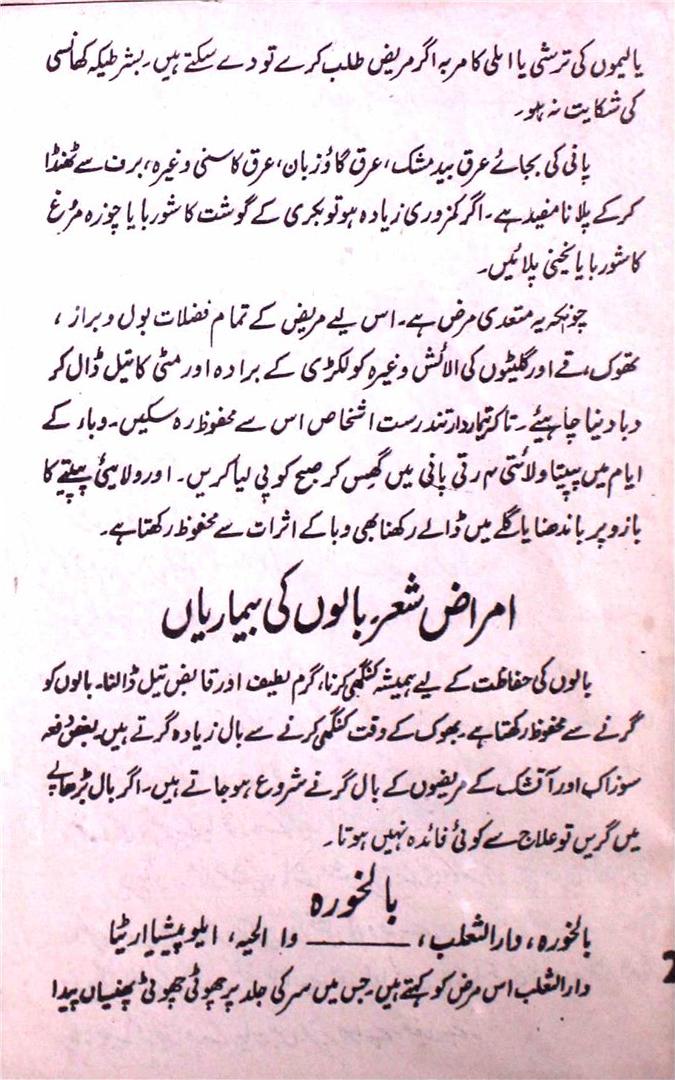 یا لیموں کی ترشی یا املی کا مربہ اگر مریض طلب کرے تو دے سکتے ہیں۔ بشرطیکہ کھانسی
کی شکایت نہ ہو۔
پانی کی بجائے عرق بید مشک، عرق گاؤزبان، عرق کاسنی وغیرہ، برف سے ٹھنڈا
کرکے پلانا مفید ہے۔ اگر کمزوری زیادہ ہو تو بکری کے گوشت کا شوربا یا چوزہ مرغ
کا شوربا یا یخنی پلائیں۔
چونکہ یہ متعدی مرض ہے۔ اس لیے مریض کے تمام فضلات بول و براز ،
تھوک، قے اور گلیٹوں کی الائش وغیرہ کو لکڑی کے برادہ اور مٹی کا تیل ڈال کر
دبا دینا چاہیئے۔ تاکہ تیماردار تندرست اشخاص اس سے محفوظ رہ سکیں۔ وباء کے
ایام میں پپیتا ولائتی ۴ رتی پانی میں گھس کر صبح کو پی لیا کریں۔ اور ولایئی پپیتے کا
بازو پر باندھنا یا گلے میں ڈالے رکھنا بھی وبا کے اثرات سے محفوظ رکھتا ہے۔
امراض شعر۔ بالوں کی بیماریاں
بالوں کی حفاظت کے لیے ہمیشہ کنگھی کرنا، گرم لطیف اور قابض تیل ڈالنا۔ بالوں کو
گرنے سے محفوظ رکھتا ہے۔ بھوک کے وقت کنگھی کرنے سے بال زیادہ گرتے ہیں۔ بعض دفعہ
سوزاک اور آتشک کے مریضوں کے بال گرنے شروع ہو جاتے ہیں۔ اگر بال بڑھاپے
میں گریں تو علاج سے کوئی فائدہ نہیں ہوتا۔
بالخورہ
بالخورہ، دار الثعلب، ــــــــ وا الحیہ، ایلوپیشیا اریٹا
دار الثعلب اس مرض کو کہتے ہیں۔ جس میں سر کی جلد پر چھوٹی چھوٹی پھنسیاں پیدا
2